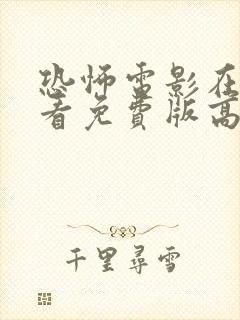 恐怖电影在
看免費版高
千里尋雪